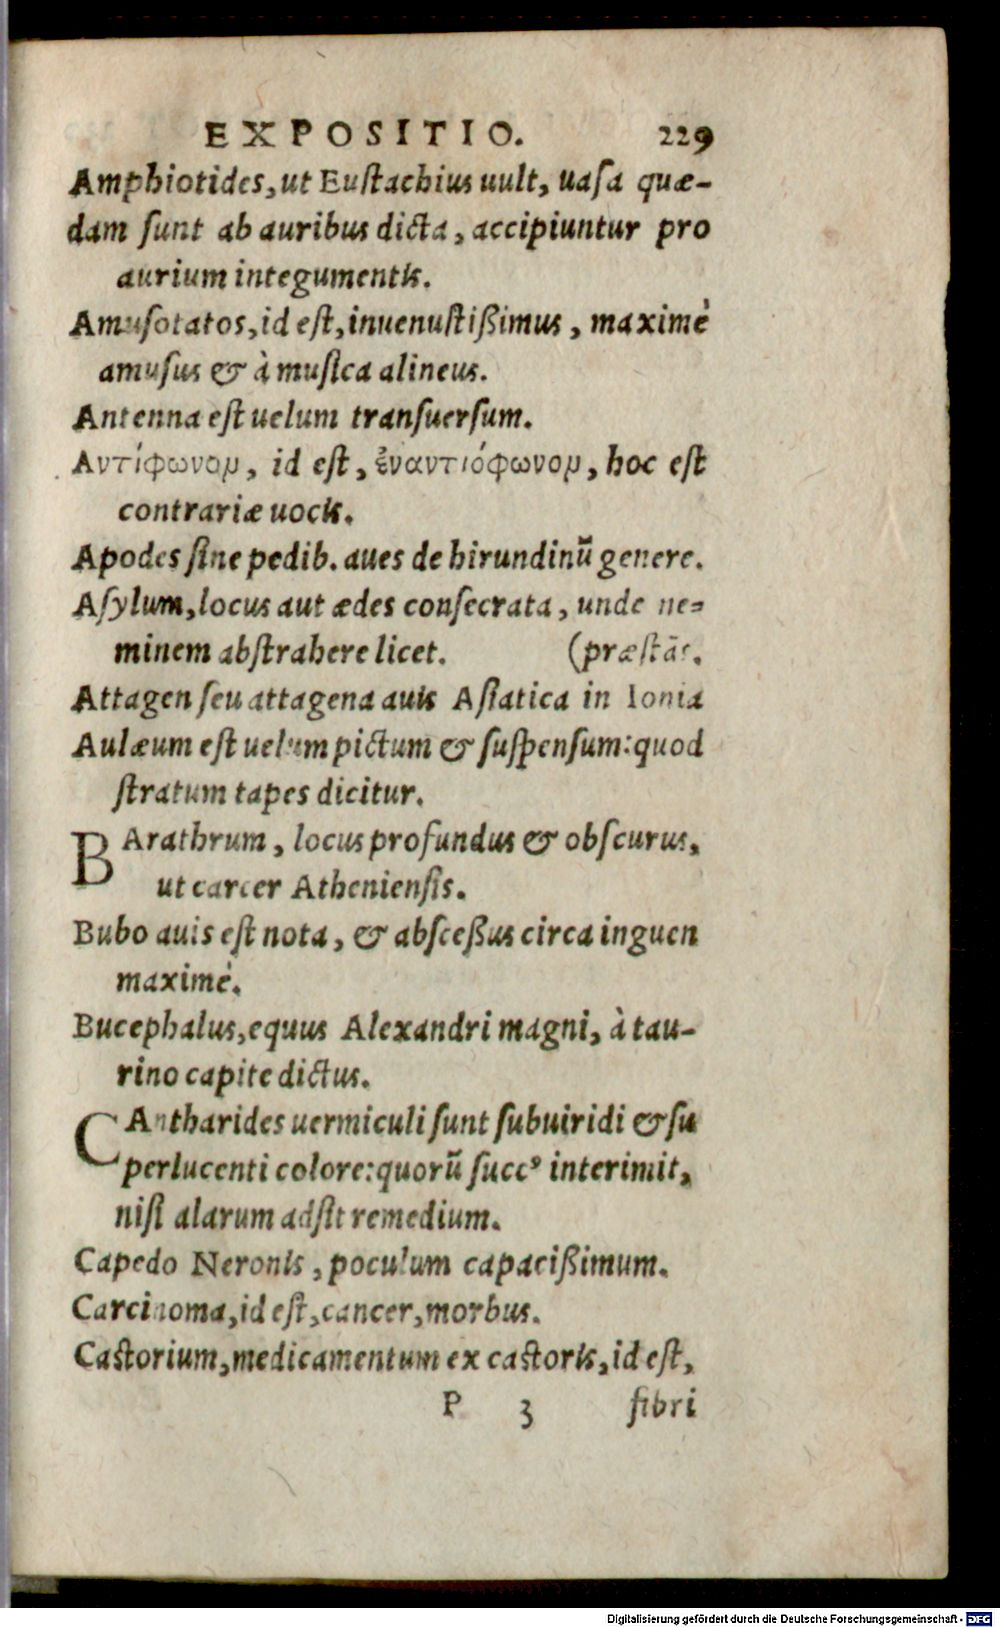 EXPOSITIO. 229
Amphiotides, ut Eustachius uult, uasa quæ-
dam sunt ab auribus dicta, accipiuntur pro
aurium integumentis.
Amusotatos, id est, inuenustißimus, maximè
amusus & à musica alineus.
Antenna est uelum transuersum.
Αντίφωνον, id est, ἐναντιόφωνον, hoc est
contrariæ uocis.
Apodes sine pedib. aues de hirundinũ genere.
Asylum, locus aut ædes consecrata, unde ne=
minem abstrahere licet. (præstãs.
Attagen seu attagena auis Asiatica in Ionia
Aulæum est uelum pictum & suspensum: quod
stratum tapes dicitur.
BArathrum, locus profundus & obscurus,
ut carcer Atheniensis.
Bubo auis est nota, & absceßus circa inguen
maximè.
Bucephalus, equus Alexandri magni, à tau-
rino capite dictus.
CAntharides uermiculi sunt subuiridi & su
perlucenti colore: quorũ succꝰ interimit,
nisi alarum adsit remedium.
Capedo Neronis, poculum capacißimum.
Carcinoma, id est, cancer, morbus.
Castorium, medicamentum ex castoris, id est,
P 3 fibri
Digitalisierung gefördert durch die Deutsche Forschungsgemeinschaft - DFG